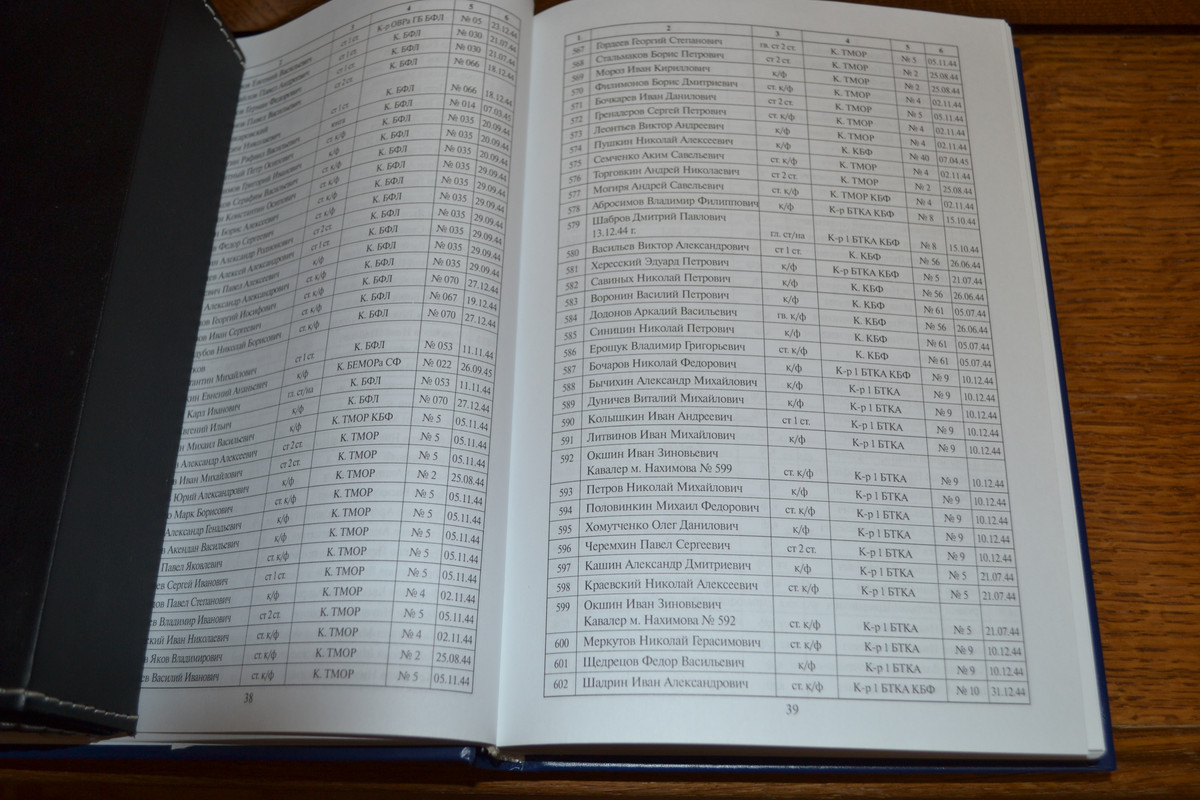 3 4 5 6
Евгений Васильевич ст 1 ст. К-р ОВРа ГБ БФЛ № 05 23.12.44
Павел Андреевич ст 1 ст. К. БФЛ № 030 21.07.44
Герман Федорович ст 1 ст. К. БФЛ № 030 21.07.44
Павел Васильевич ст 2 ст. К. БФЛ № 066 18.12.44
Николаевич ст 1 ст. К. БФЛ № 066 18.12.44
Рафаил Васильевич юнга К. БФЛ № 014 07.03.45
Петр Осипович ст. к/ф К. БФЛ № 035 20.09.44
Григорий Иванович к/ф К. БФЛ № 035 20.09.44
Серафим Васильевич к/ф К. БФЛ № 035 20.09.44
Константин Осипович ст. к/ф К. БФЛ № 035 29.09.44
Борис Алексеевич ст. к/ф К. БФЛ № 035 29.09.44
Федор Сергеевич ст. к/ф К. БФЛ № 035 29.09.44
Александр Родионович ст 2 ст. К. БФЛ № 035 29.09.44
Алексей Александрович ст 1 ст. К. БФЛ № 035 29.09.44
Павел Алексеевич к/ф К. БФЛ № 035 29.09.44
Александр Александрович ст. к/ф К. БФЛ № 035 29.09.44
Георгий Иосифович к/ф К. БФЛ № 070 27.12.44
Иван Сергеевич ст. к/ф К. БФЛ № 067 19.12.44
дубов Николай Борисович ст. к/ф К. БФЛ № 070 27.12.44
ков
антин Михайлович ст 1 ст. К. БФЛ № 053 11.11.44
кин Евгений Ананьевич к/ф К. БЕМОРа СФ № 022 26.09.45
Карл Иванович гл. ст/на К. БФЛ № 053 11.11.44
Евгений Ильич к/ф К. БФЛ № 070 27.12.44
н Михаил Васильевич к/ф К. ТМОР КБФ № 5 05.11.44
Александр Алексеевич ст 2 ст. К. ТМОР № 5 05.11.44
Иван Михайлович ст 2 ст. К. ТМОР № 5 05.11.44
Юрий Александрович к/ф К. ТМОР № 2 25.08.44
Марк Борисович ст. к/ф К. ТМОР № 5 05.11.44
Александр Генадьевич к/ф К. ТМОР № 5 05.11.44
Акендан Васильевич к/ф К. ТМОР № 5 05.11.44
Павел Яковлевич ст. к/ф К. ТМОР № 5 05.11.44
ев Сергей Иванович ст 1 ст. К. ТМОР № 5 05.11.44
дов Павел Степанович к/ф К. ТМОР № 4 02.11.44
ев Владимир Иванович ст 2 ст. К. ТМОР № 5 05.11.44
ский Иван Николаевич ст. к/ф К. ТМОР № 4 02.11.44
в Яков Владимирович ст. к/ф К. ТМОР № 2 25.08.44
ев Василий Иванович ст. к/ф К. ТМОР № 5 05.11.44
38
1 2 3 4 5 6
567 Гордеев Георгий Степанович гв. ст 2 ст. К. ТМОР № 5 05.11.44
568 Стальмаков Борис Петрович ст 2 ст. К. ТМОР № 2 25.08.44
569 Мороз Иван Кириллович к/ф К. ТМОР № 2 25.08.44
570 Филимонов Борис Дмитриевич ст. к/ф К. ТМОР № 4 02.11.44
571 Бочкарев Иван Данилович ст 2 ст. К. ТМОР № 5 05.11.44
572 Гренадеров Сергей Петрович ст. к/ф К. ТМОР № 4 02.11.44
573 Леонтьев Виктор Андреевич к/ф К. ТМОР № 4 02.11.44
574 Пушкин Николай Алексеевич к/ф К. КБФ № 40 07.04.45
575 Семченко Аким Савельевич ст. к/ф К. ТМОР № 4 02.11.44
576 Торговкин Андрей Николаевич ст 2 ст. К. ТМОР № 2 25.08.44
577 Могиря Андрей Савельевич ст. к/ф К. ТМОР КБФ № 4 02.11.44
578 Абросимов Владимир Филиппович к/ф К-р БТКА КБФ № 8 15.10.44
579 Шабров Дмитрий Павлович
13.12.44 г. гл. ст/на К-р 1 БТКА КБФ № 8 15.10.44
580 Васильев Виктор Александрович ст 1 ст. К. КБФ № 56 26.06.44
581 Хересский Эдуард Петрович к/ф К-р БТКА КБФ № 5 21.07.44
582 Савиных Николай Петрович к/ф К. КБФ № 56 26.06.44
583 Воронин Василий Петрович к/ф К. КБФ № 61 05.07.44
584 Додонов Аркадий Васильевич гв. к/ф К. КБФ № 56 26.06.44
585 Синицин Николай Петрович к/ф К. КБФ № 61 05.07.44
586 Ерощук Владимир Григорьевич ст. к/ф К. КБФ № 61 05.07.44
587 Бочаров Николай Федорович к/ф К-р 1 БТКА КБФ № 9 10.12.44
588 Бычихин Александр Михайлович к/ф К-р 1 БТКА № 9 10.12.44
589 Дуничев Виталий Михайлович к/ф К-р 1 БТКА № 9 10.12.44
590 Колышкин Иван Андреевич ст 1 ст. К-р 1 БТКА № 9 10.12.44
591 Литвинов Иван Михайлович к/ф К-р 1 БТКА № 9 10.12.44
592 Окшин Иван Зиновьевич
Кавалер м. Нахимова № 599 ст. к/ф К-р 1 БТКА № 9 10.12.44
593 Петров Николай Михайлович к/ф К-р 1 БТКА № 9 10.12.44
594 Половинкин Михаил Федорович ст. к/ф К-р 1 БТКА № 9 10.12.44
595 Хомутченко Олег Данилович к/ф К-р 1 БТКА № 9 10.12.44
596 Черемхин Павел Сергеевич ст 2 ст. К-р 1 БТКА № 9 10.12.44
597 Кашин Александр Дмитриевич к/ф К-р 1 БТКА № 5 21.07.44
598 Краевский Николай Алексеевич ст. к/ф К-р 1 БТКА № 5 21.07.44
599 Окшин Иван Зиновьевич
Кавалер м. Нахимова № 592 ст. к/ф К-р 1 БТКА № 5 21.07.44
600 Меркутов Николай Герасимович ст. к/ф К-р 1 БТКА № 9 10.12.44
601 Щедрецов Федор Васильевич к/ф К-р 1 БТКА № 9 10.12.44
602 Шадрин Иван Александрович ст. к/ф К-р 1 БТКА КБФ № 10 31.12.44
39